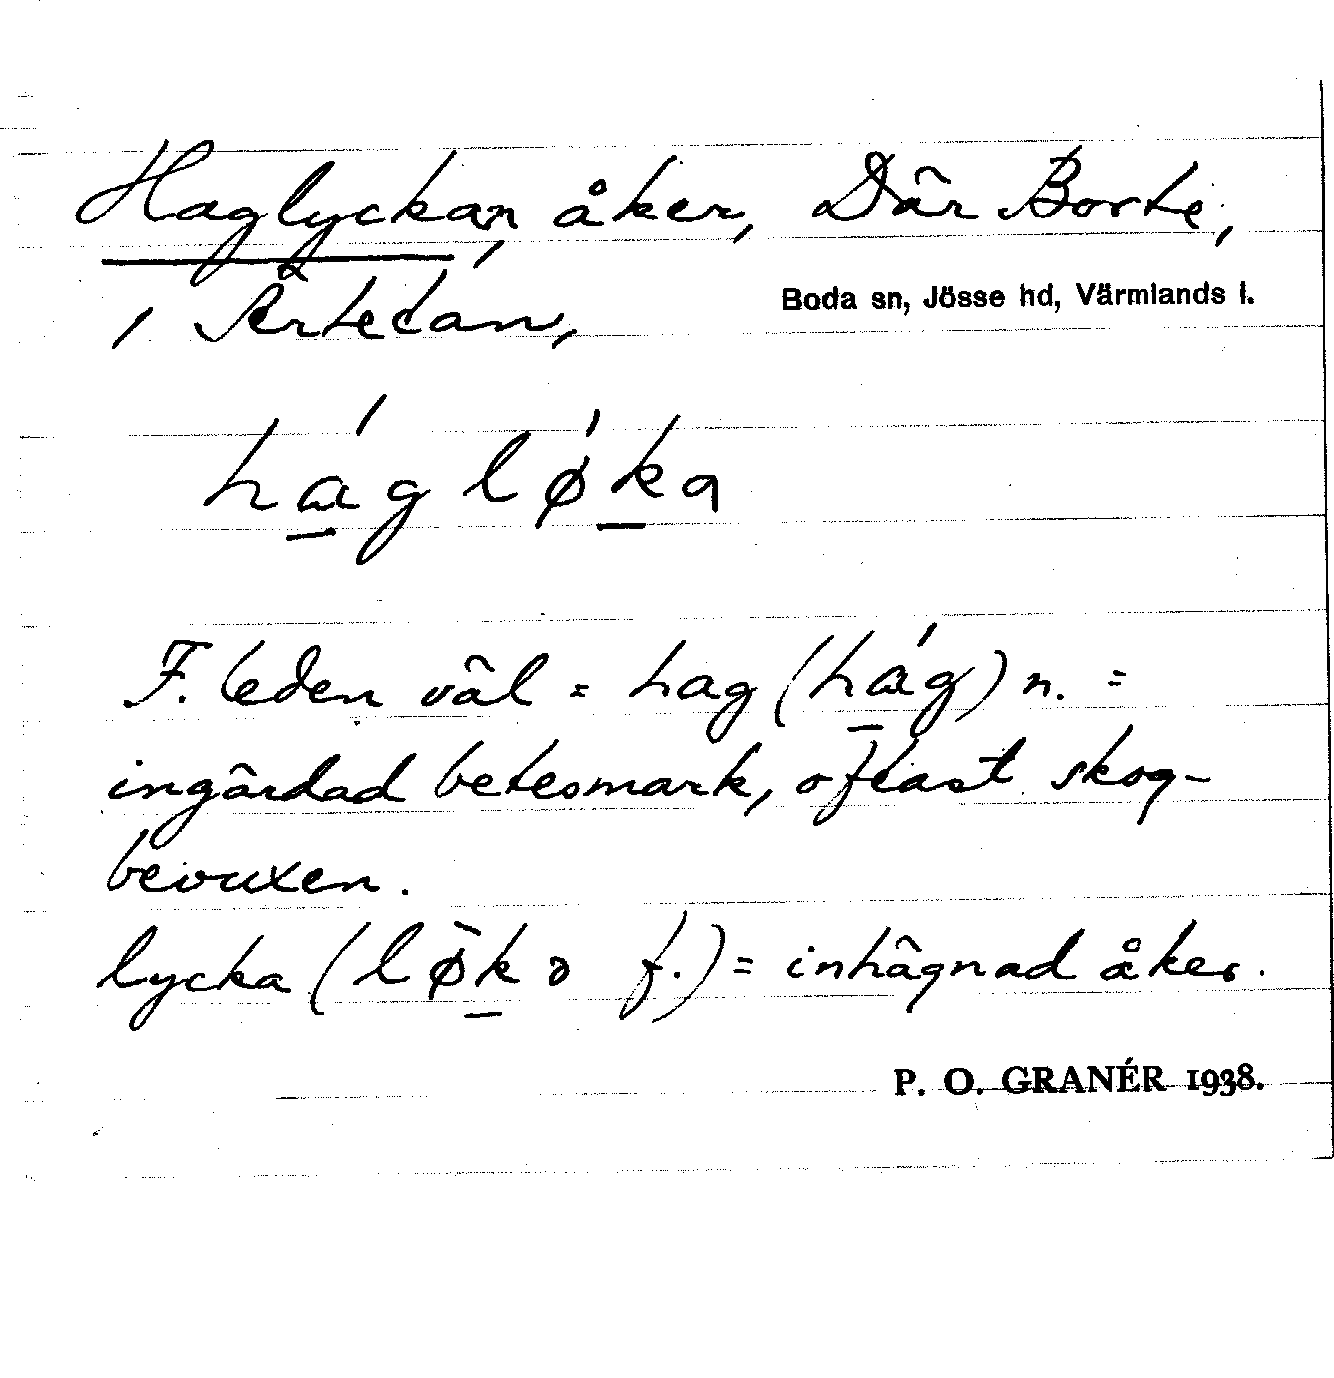 Haglyckan, åker, Där Borte,
i Årtetan,
Boda sn, Jösse hd, Värmlands l.
há̱gløḵa
F. leden väl = hag (há̱g) n. =
ingärdad betesmark, oftast skog-
bevuxen.
lycka (lø̀ḵə f.) = inhägnad åker.
P. O. GRANÉR 1938.